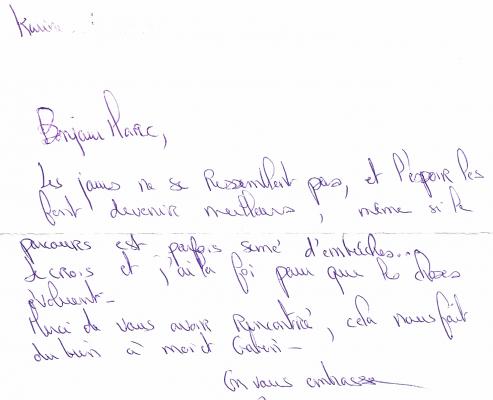 Bonjour Marc,
Les jours ne se ressemblent pas, et l'espoir les
font devenir meilleurs, même si le
parcours est parfois semé d'embûches...
Je crois et j'ai la foi pour que les choses
évoluent-
Merci de vous avoir rencontré, cela nous fait
du bien à moi et
On vous embrasse